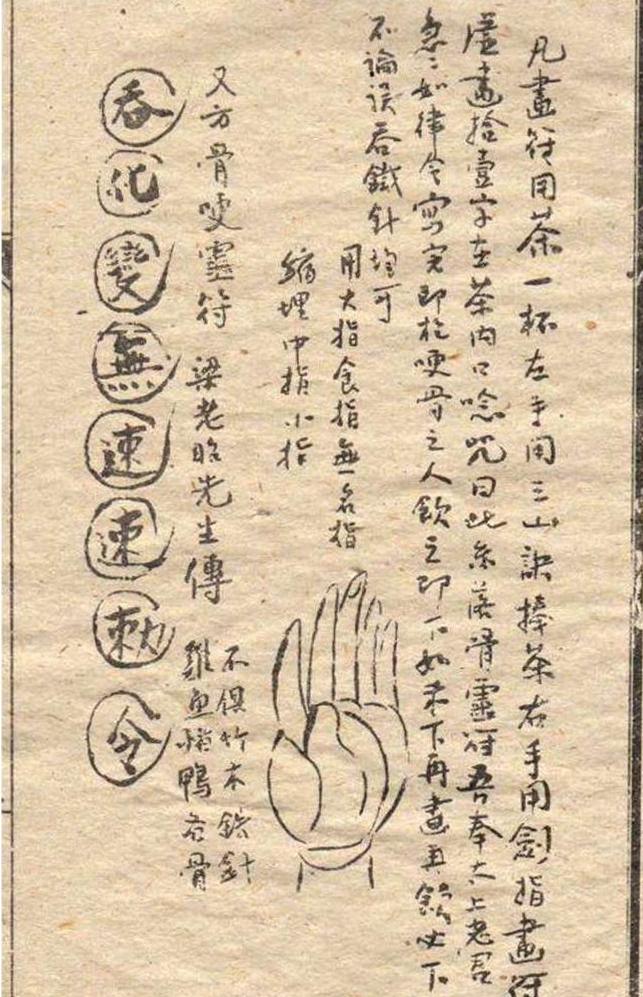 凡畫符用茶一杯左手用三山訣捧茶右手用劍指畫符
虛畫拾壹字在茶內口唸咒曰此茶落骨靈符吾奉太上老君
急急如律令寫完即於哽骨之人飲之即下如未下再畫再飲必下
不論誤吞鐵針均可
用大指食指無一名指
縮埋中指小指
又方骨哽靈符 梁老昭先生傳
不俱竹木鉄針
雞魚鵝鴨各骨
吞化變無速速勅令